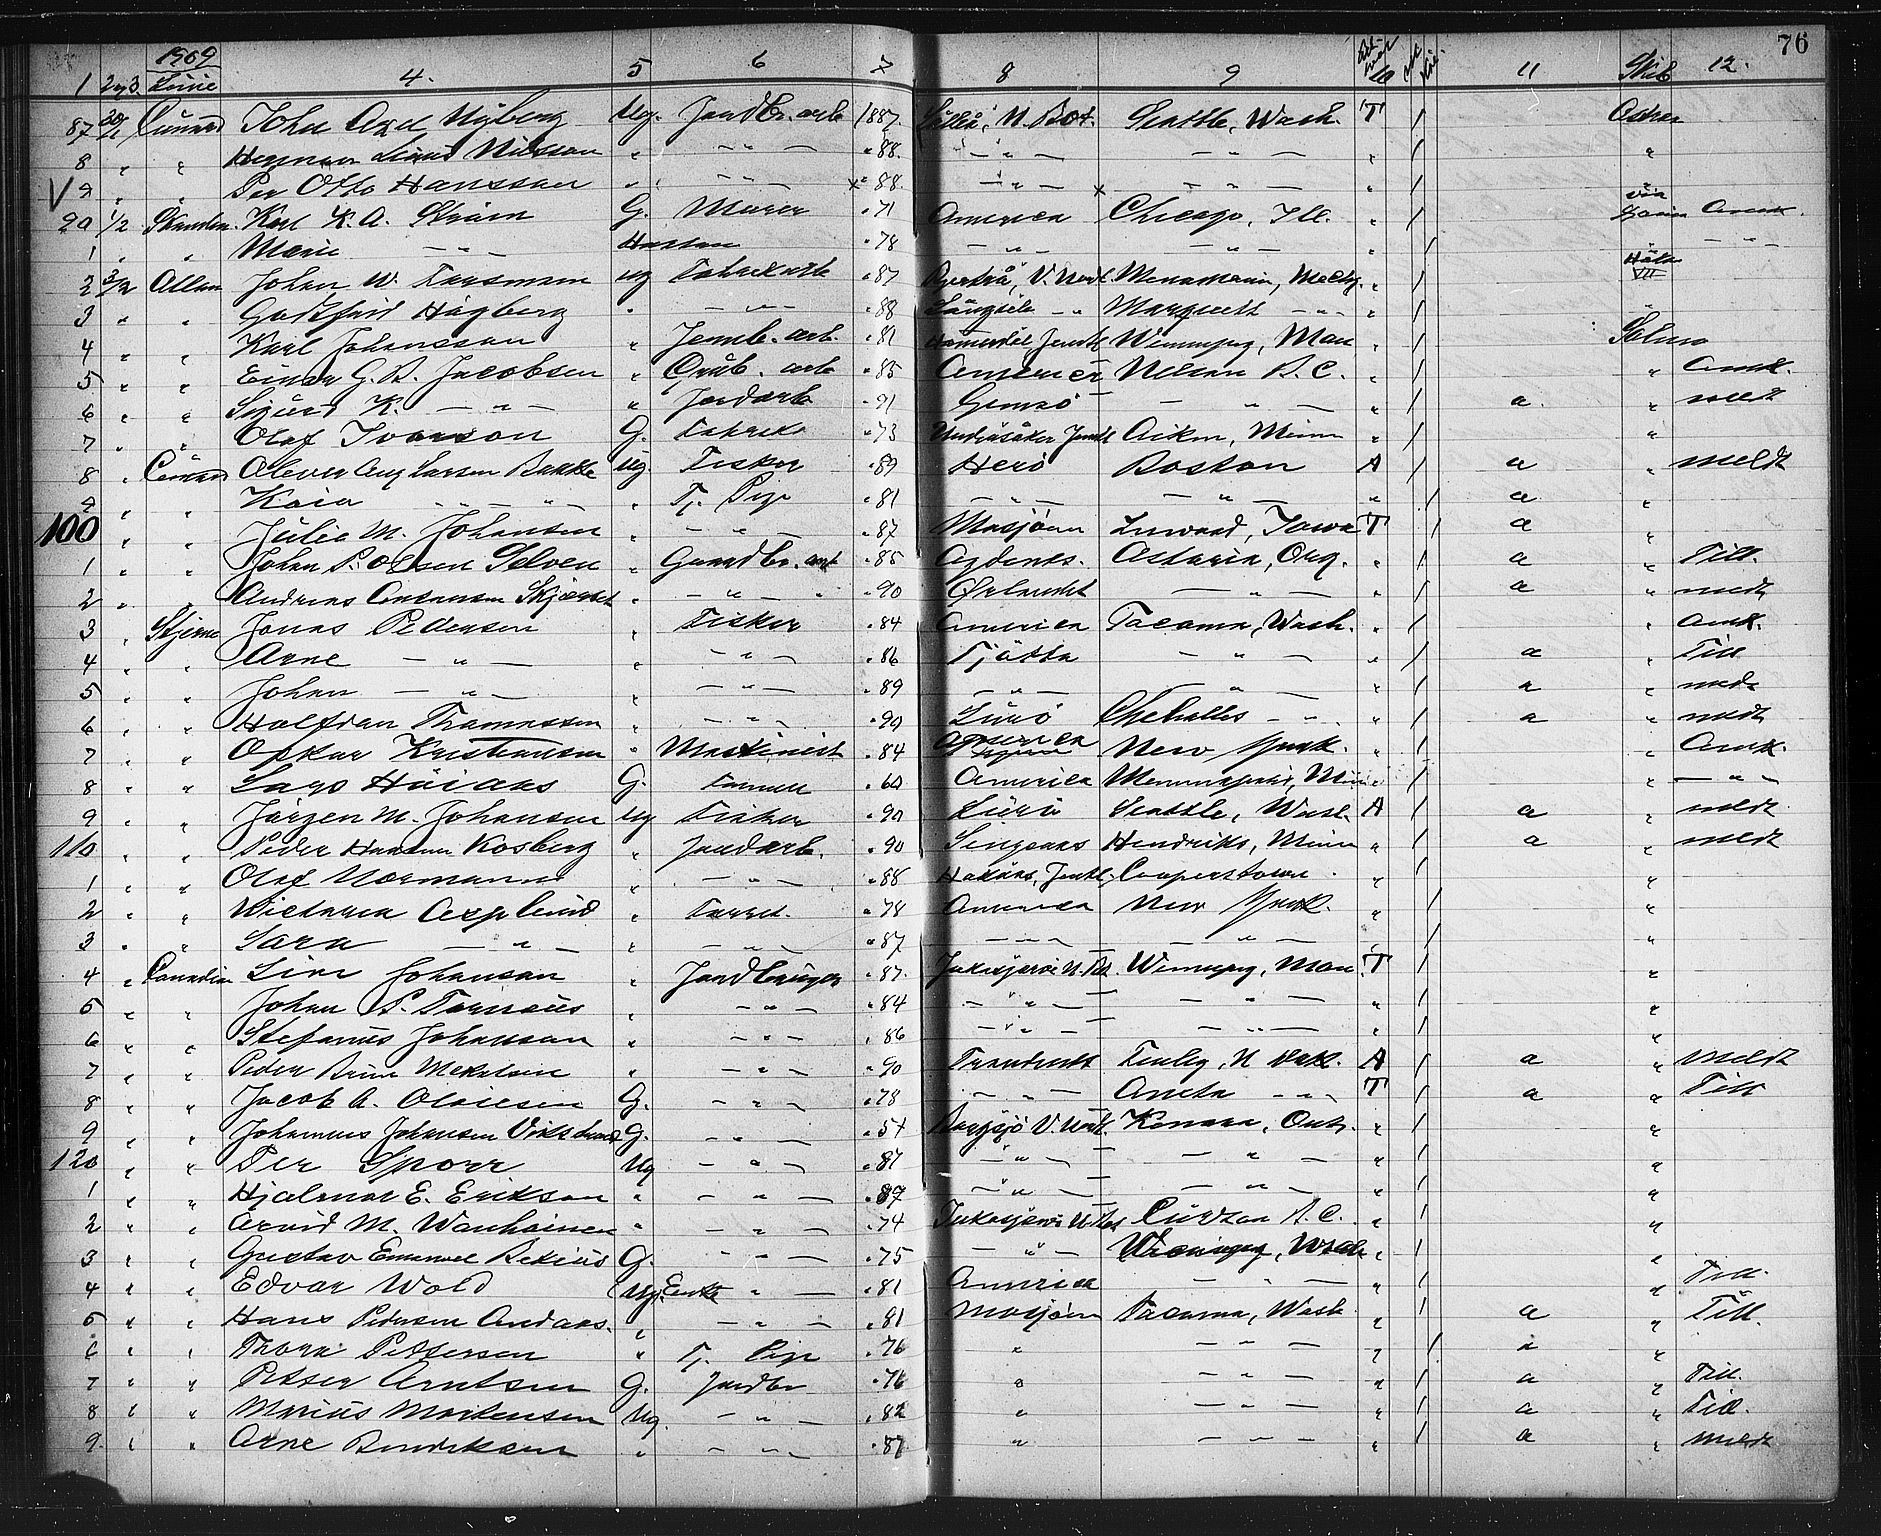 76
1909
1 2 og 3. Linie 4. 5 6 7 8 9 10 11 Skib 12.
87 30/1 Cunard John Axel Nyberg Ug. Jordbr. arb 1887. Luleå, N. Bot. Seattle, Wash. T / Oihonna
8 " " Herman Linus Nilsson " — " — " 88. — " — — " — " / "
V 9 " " Per Otto Hansson " " — " — x " 88. — " — x — " — " / "
90 1/2 Skandin. Karl K. A. Ström G. Murer " 71 America Chicago, Ill. " / via Amk.
1 " " Marie — " — Hustru " 78 — " — — " — " / — " —
2 3/2 Allan Johan W. Forsman ug Fabrikarb " 87 V. Norrl Menominee, Mich. " /
3 " " Godtfrid Högberg " — " — " 88 Långsele — " Marquett — " — " / "
4 " " Karl Johansson " Jernb. arb. " 81 Hammerdal Jemtl Winnipeg, Man " / Salmo
5 " " Einar G. B. Jacobsen " Grub. arb " 85 America Nelson B. C. " / " Amk.
6 " " Sigurd K. — " — " Jordarb " 91 Gemsö — " — " / a " meldt
7 " " Olof Ivarson G. Fabrika " 73 Undersåker Jemtl Aikin, Minn " / "
8 " Cunard Oliver Aug Larsen Bakke Ug Fisker " 89 Herö Boston A / a " meldt
9 " " Kaia " " " " Tj. Pige " 81 — " — — " — " / a "
100 " " Julie M. Johansen " — " — " 87 Mosjöen Inwood, Iowa T / a "
1 " " Johan P. Olsen Selven " Gaardbr. arb " 85 Agdenes. Astoria, Org. " / a " Till.
2 " " Andreas " — " — " 90 Ørlandet — " — " / a " meldt
3 " Stjerne Jonas Pedersen " Fisker " 84 America Tacoma, Wash. " / " Amk.
4 " " Arne — " — " — " — " 86 Tjötta — " — " / a " Till
5 " " Johan — " — " — " — " 89 — " — — " — " / a " meldt
6 " " Halfdan Thomassen " — " — " 90 Lurö Chehalles — " — " / a " meldt
7 " " Oskar Kristiansen " Maskinist " 84 America New York. " / " Amk.
8 " " Lars Höiaas G. Farmer " 60 America Minneapolis, Minn " / " — " —
9 " " Jörgen M. Johansen Ug Fisker " 90 Lurö Seattle, Wash. A / a " meldt
110 " " Peder Hansen Kosberg " Jordarb. " 90 Singsaas Hendriks, Minn " / a " meldt
1 " " Olof Norman " — " — " 88 Hackås, Jemtl, Cooperstown " / "
2 " " Victoria Asplund " " 78 America New York. " / "
3 " " Sara — " — " — " — " 87 — " — — " — " / "
4 " Canadian Line Johanson " Jordbruger " 87. Jukasjervi N. Bt. Winnipeg, Man T / "
5 " " Johan P. Tornæus " — " — " 84 — " — — " — " / "
6 " " Stefanus Johanson " — " — " 86 — " — — " — " / "
7 " " Peder Arne Mikelsen " — " — " 90 Trondenes Finley, N Dak. A / a " Meldt
8 " " Jacob A. Olaiesen G. — " — " 78 — " — Aneta — " — T / a " Till
9 " " Johannes Johansen G. — " — " 54 Borgsjö V. Norl. Kenora, Ont. " / "
120 " " Per Sporr Ug — " — " 87 — " — — " — " / "
1 " " Hjalmar E. Erikson " — " — " 89 — " — — " — " / "
2 " " Arvid M. Wanhainen " — " — " 74 Jukasjervi N. Bot Curzon B. C. " / "
3 " " Gustav Emanuel Bekius G. — " — " 75 — " — " / "
4 " " Edvar Wold Ug. Enke — " — " 81 America — " — " / " Till.
5 " " Hans Pedersen Andaas. " — " — " 81 Mosjöen Tacoma, Wash " / a " Till.
6 " " Thora Pettersen " Tj. Pige " 76 " — " — " / a "
7 " " Petter Arntsen G. Jordbr " 76 " — " — " / a " Till.
8 " " Marius Mortensen Ug — " — " 82 " — " — " / a " Till.
9. " " Arne Bendiksen " — " — " 87 " — " — " / a " meldt